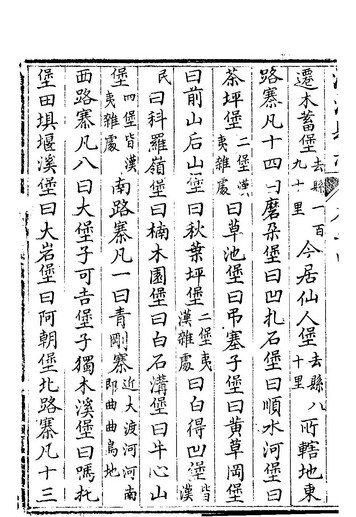 遷木蓄堡去縣一百九十里今居仙人堡去縣八十里所轄地東
路寨凡十四曰磨朶堡曰凹扎石堡曰順水河堡曰
茶坪堡二堡漢夷雜處曰草池堡曰吊塞子堡曰黄草岡堡
曰前山后山堡曰秋葉坪堡二堡夷漢雜處曰白得凹堡皆漢
民曰科羅嶺堡曰楠木園堡曰白石溝堡曰牛心山
堡四堡皆漢夷雜處南路寨凡一曰青剛寨近大渡河河南即曲曲鳥地
西路寨凡八曰大堡子可吉堡子獨木溪堡曰嗎托
堡田埧堰溪堡曰大岩堡曰阿朝堡北路寨凡十三